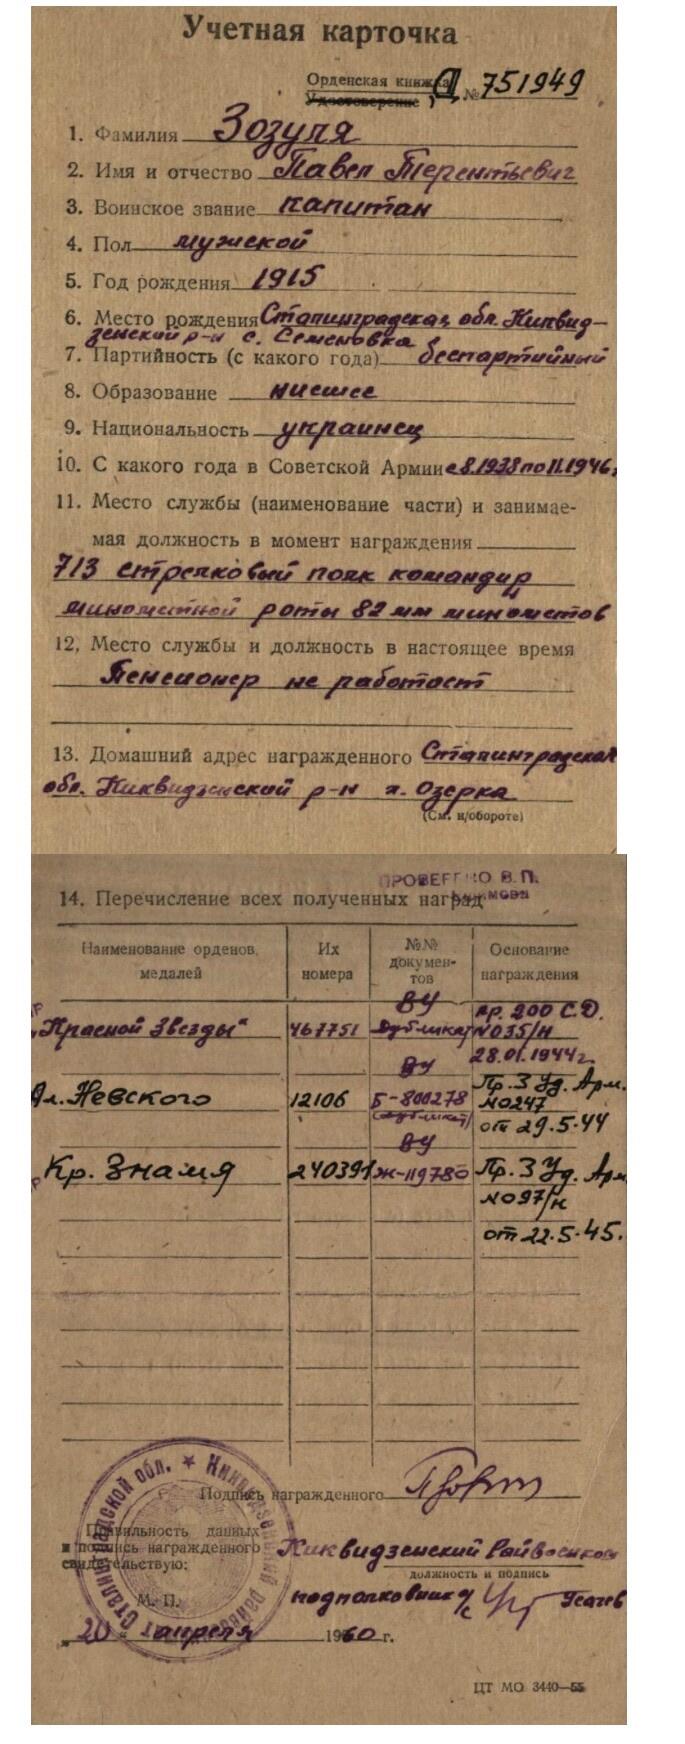 Учетная карточка
Орденская книжка Д №751949
Удостоверение
1. Фамилия Зозуля
2. Имя и отчество Павел Терентьевич
3. Воинское звание капитан
4. Пол мужской
5. Год рождения 1915
6. Место рождения Сталинградская обл. Киквид-
зенский р-н с. Семеновка
7. Партийность (с какого года) беспартийный
8. Образование низшее
9. Национальность украинец
10. С какого года в Советской Армии с 8.1938 по 11.1946г
11. Место службы (наименование части) и занимае-
мая должность в момент награждения
713 стрелковый полк командир
минометной роты 82 мм минометов
12, Место службы и должность в настоящее время
Пенсионер не работает
13. Домашний адрес награжденного Сталинградская
обл. Киквидзенский р-н х. Озерка
(См. н/обороте)
ПРОВЕРЕНО В.П.
14. Перечисление всех полученных наград
Наименование орденов, медалей
Их номера
№№ документов
Основание награждения
„Красной Звезды" 467751 ВУ дубликат пр. 200 С.Д. №035/н 28.01.1944г.
Ал. Невского 12106 ВУ Б-800278 (дубликат) Пр. 3 Уд. Арм. №0247 от 29.5.44
Кр. Знамя 240391 ВУ Ж-119780 Пр. 3 Уд. Арм. №097/н от 22.5.45.
Подпись награжденного
Правильность данных
и подпись награжденного
свидетельствую:
Киквидзенский Райвоенком
должность и подпись
М. П.
подполковник Усачев
„20" апреля 1960 г.
Сталинградской обл. ★ Киквидзенский
ЦТ МО 3440—55